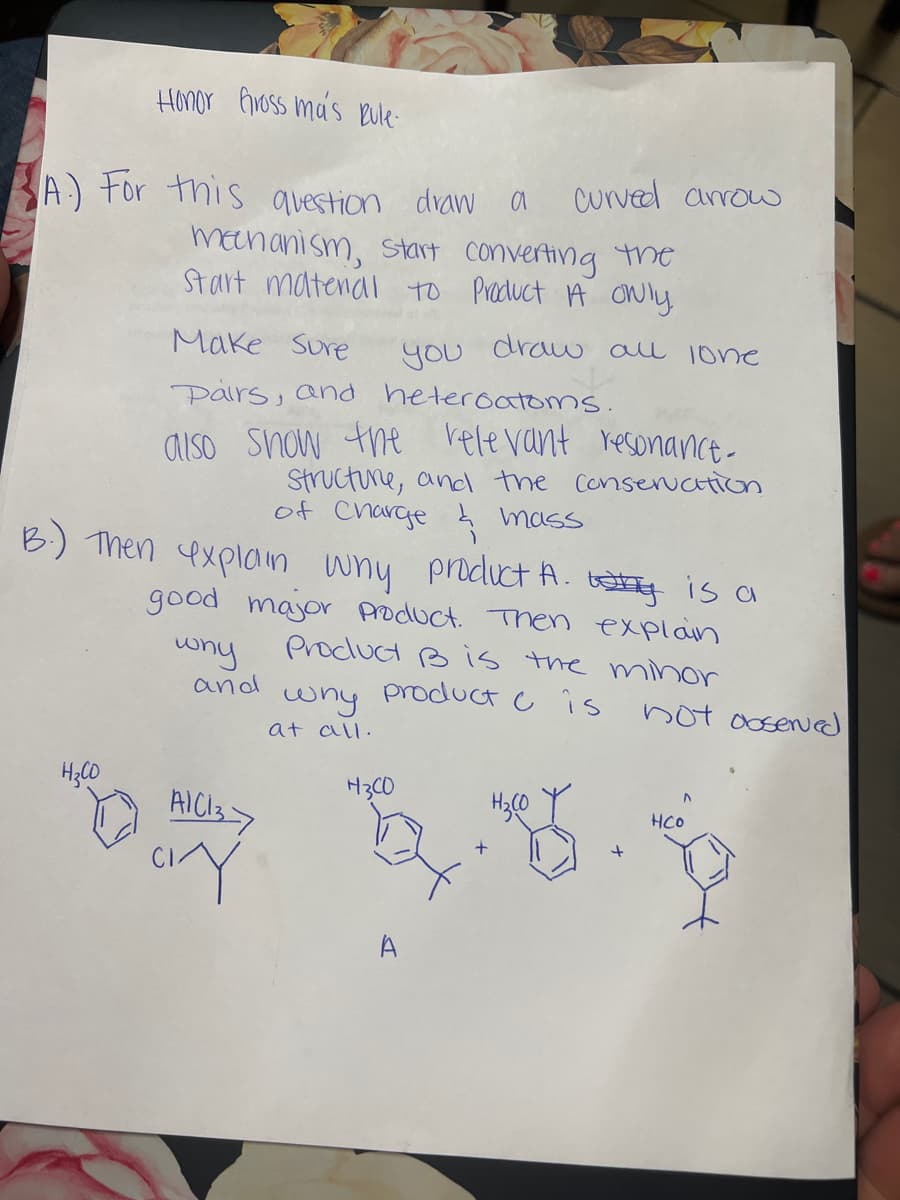 Honor Gross ma's Rule.
A.) For this question draw a curved arrow
mechanism, start converting the
start material to Product A only.
Make sure you draw all lone
pairs, and heteroatoms.
also show the relevant resonance-
structure, and the conservation
of charge & mass
B.) Then explain why product A. why is a
good major product. Then explain
why Product B is the minor
and why product c is not observed
at all.
H3CO AlCl3 Cl H3CO + H3CO + HCO
A